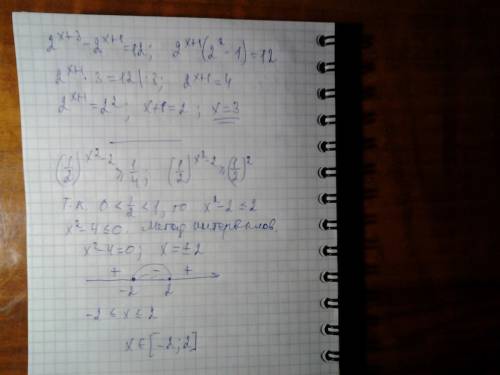 2^{x+3} - 2^{x+1} = 12; 2^{x+1}(2^2 - 1) = 12
2^{x+1} · 3 = 12 | : 3; 2^{x+1} = 4
2^{x+1} = 2^2; x+1 = 2; x = 3
(1/2)^{x^2-2} ≥ 1/4; (1/2)^{x^2-2} ≥ (1/2)^2
Т.к. 0 < 1/2 < 1, то x^2 - 2 ≤ 2
x^2 - 4 ≤ 0. Метод интервалов.
x^2 - 4 = 0; x = ± 2
+ - +
-2 2
-2 ≤ x ≤ 2
x ∈ [-2; 2]